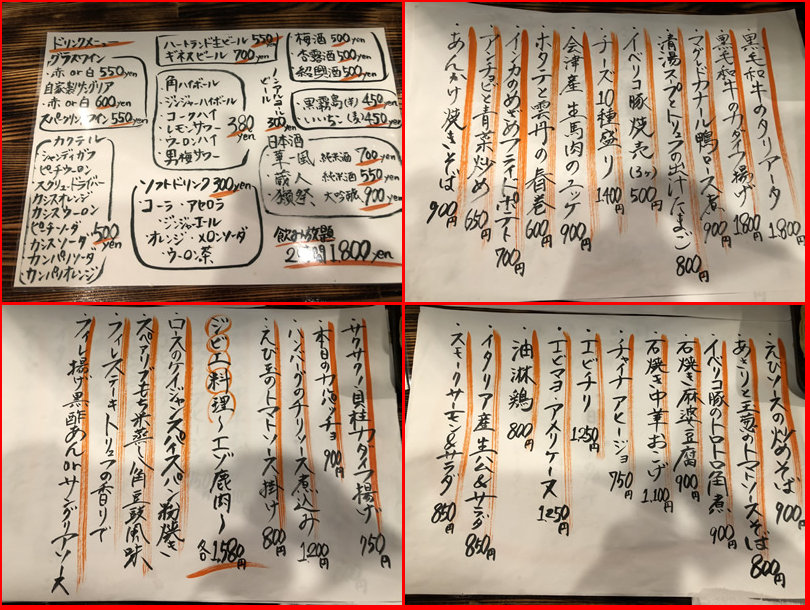 ドリンクメニュー
グラスワイン
・赤 or 白 550yen
自家製サングリア
・赤 or 白 600yen
スパークリングワイン 550yen
カクテル
・シャンディガフ
・ピーチウーロン
・スクリュードライバー
・カシスオレンジ
・カシスウーロン
・ピーチソーダ
・カシスソーダ
・カンパリソーダ
・カンパリオレンジ
500yen
ハートランド生ビール 550yen
ギネスビール 700yen
・角ハイボール
・ジンジャーハイボール
・コークハイ
・レモンサワー
・ウーロンハイ
・男梅サワー
380yen
ソフトドリンク 300yen
・コーラ・アセロラ
・ジンジャーエール
・オレンジ・メロンソーダ
・ウーロン茶
ノンアルコールビール 300yen
・梅酒 500yen
・杏露酒 500yen
・紹興酒 500yen
・黒霧島(芋) 450yen
・いいちこ(麦) 450yen
日本酒
・車一風 純米酒 700yen
・蔵人 純米酒 550yen
・獺祭 大吟醸 900yen
飲み放題
2時間 1800yen
・黒毛和牛のタリアータ 1800円
・黒毛和牛のカダイフ揚げ 1800円
・マグドカナール鴨ロース煮 900円
・清湯スープとトリュフの出汁たまご 800円
・イベリコ豚焼売(3ヶ) 500円
・チーズ10種盛り 1400円
・会津産 生馬肉のユッケ 900円
・ホタテと雲丹の春巻 600円
・インカのめざめフライドポテト 700円
・アンチョビと青菜炒め 650円
・あんかけ焼きそば 900円
・サクサク!貝柱カダイフ揚げ 750円
・本日のカルパッチョ 900円
・ハンバーグのチリソース煮込み 1200円
・えび玉のトマトソース掛け 800円
ジビエ料理〜エゾ鹿肉〜 各1,580円
・ロースのケイジャンスパイスパン粉焼き
・スペアリブもち米蒸し八角豆豉風味
・フィレステーキトリュフの香りで
・フィレ揚げ黒酢あんorサングリアソース
・えびソースの炒めそば 900円
・あさりと玉葱のトマトソースそば 800円
・イベリコ豚のトロトロ角煮 900円
・石焼き麻婆豆腐 900円
・石焼き中華おこげ 1,100円
・チャイナアヒージョ 750円
・エビチリ 1250円
・エビマヨ・アメリケーヌ 1250円
・油淋鶏 800円
・イタリア産生ハム&サラダ 850円
・スモークサーモン&サラダ 850円